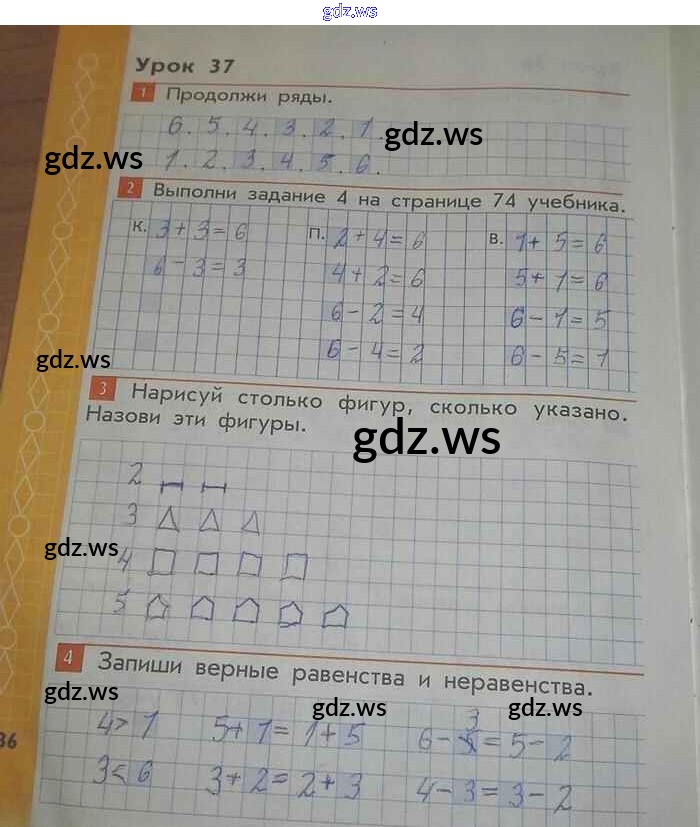 gdz.ws
Урок 37
1 Продолжи ряды.
6. 5. 4. 3. 2. 1. gdz.ws
gdz.ws 1. 2. 3. 4. 5. 6.
2 Выполни задание 4 на странице 74 учебника.
к. 3+3=6 п. 2+4=6 в. 1+5=6
6-3=3 4+2=6 5+1=6
6-2=4 6-1=5
gdz.ws 6-4=2 6-5=1
3 Нарисуй столько фигур, сколько указано.
Назови эти фигуры. gdz.ws
2
3
gdz.ws
4
5
4 Запиши верные равенства и неравенства.
gdz.ws gdz.ws gdz.ws
4>1 5+1=1+5 6-3=5-2
36
3<6 3+2=2+3 4-3=3-2